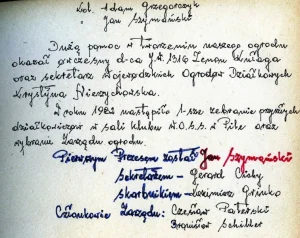 kol. Adam Grzegorczyk
" Jan Szymański
Dużą pomoc w tworzeniu naszego ogrodu
okazał ówczesny d-ca J.W. 1316 Zenon Kułaga
oraz sekretarz Wojewódzkich Ogrodów Działkowych
Krystyna Niezychowska.
W roku 1982 nastąpiło 1-sze zebranie przyszłych
działkowiczów w sali klubu W.O.S.S. w Pile oraz
wybranie Zarządu ogrodu.
Pierwszym Prezesem został Jan Szymański
sekretarzem - Gerard Cichy
skarbnikiem - Kazimierz Grinko
Członkowie Zarządu: Czesław Paterski
Bronisław Schiller